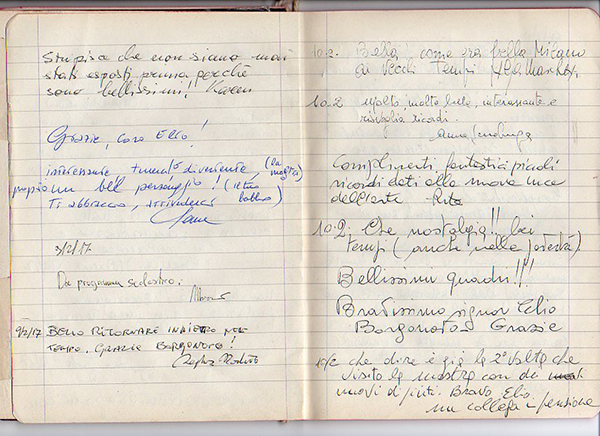 Stupisce che non siano mai
stati esposti prima perché
sono bellissimi!! Karen
Grazie, caro Elio!
interessante tumulto divertente, (la mostra)
proprio un bel personaggio! (il tuo babbo)
Ti abbraccio, arrivederci
3/2/17
Da programma scolastico.
9/2/17 BELLO RITORNARE INDIETRO NEL
TEMPO. GRAZIE BORGONOVO!
10.2. Bella, come era bella Milano
ai vecchi tempi
10.2 molto, molto bello, interessante e
risveglia ricordi.
Anna
Complimenti fantastici piccoli
ricordi dati alla nuova luce
dell'arte Rita
10.2. Che nostalgia!! bei
tempi (anche nella povertà)
Bellissimi quadri!!!
Bravissimo signor Elio
Borgonovo Grazie
che dire è già la 2ª volta che
visito la mostra con dei
nuovi dipinti. Bravo, Elio.
un collega in pensione